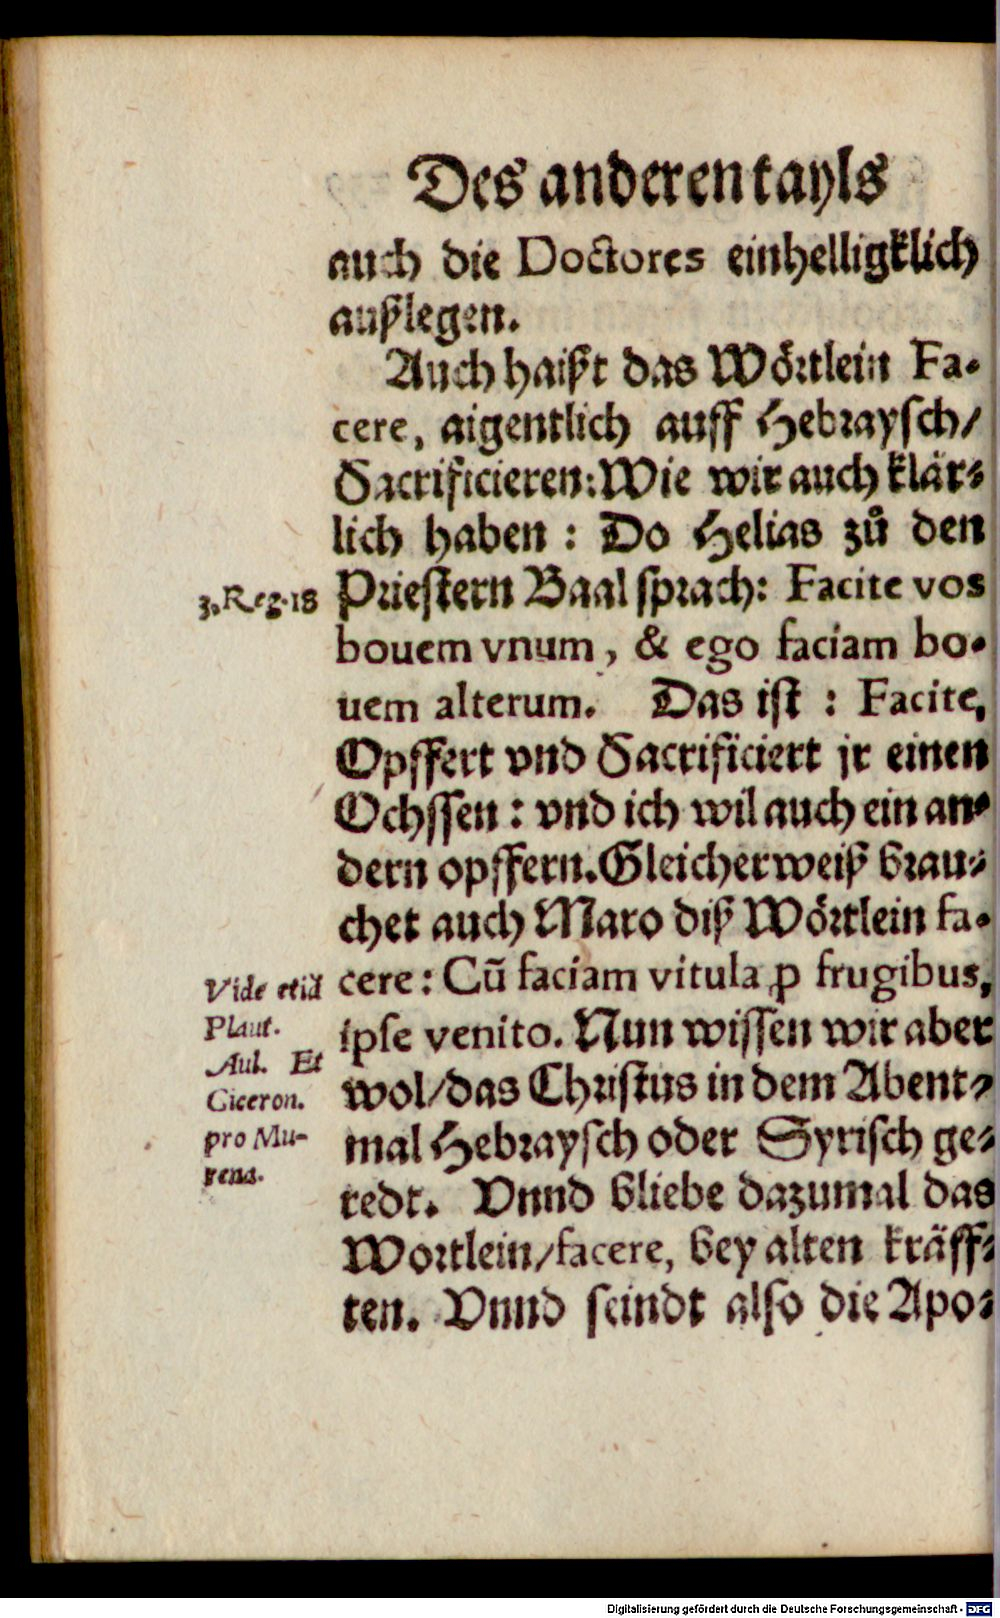 Des anderen tayls
auch die Doctores einhelligklich
außlegen.
Auch haißt das Wörtlein Fa-
cere, aigentlich auff Hebraysch/
Sacrificieren: Wie wir auch klär-
lich haben : Do Helias zů den
3. Reg. 18
Priestern Baal sprach: Facite vos
bouem vnum, & ego faciam bo-
uem alterum. Das ist : Facite,
Opffert vnd Sacrificiert jr einen
Ochssen : vnd ich wil auch ein an-
dern opffern. Gleicherweiß brau-
chet auch Maro diß Wörtlein fa-
cere: Cũ faciam vitula ꝓ frugibus,
ipse venito. Nun wissen wir aber
wol/das Christus in dem Abent-
mal Hebraysch oder Syrisch ge-
redt. Vnnd bliebe dazumal das
Wortlein/facere, bey alten kräff-
ten. Vnnd seindt also die Apo-
Vide etiã
Plaut.
Aul. Et
Ciceron.
pro Mu-
rena.
Digitalisierung gefördert durch die Deutsche Forschungsgemeinschaft - DFG